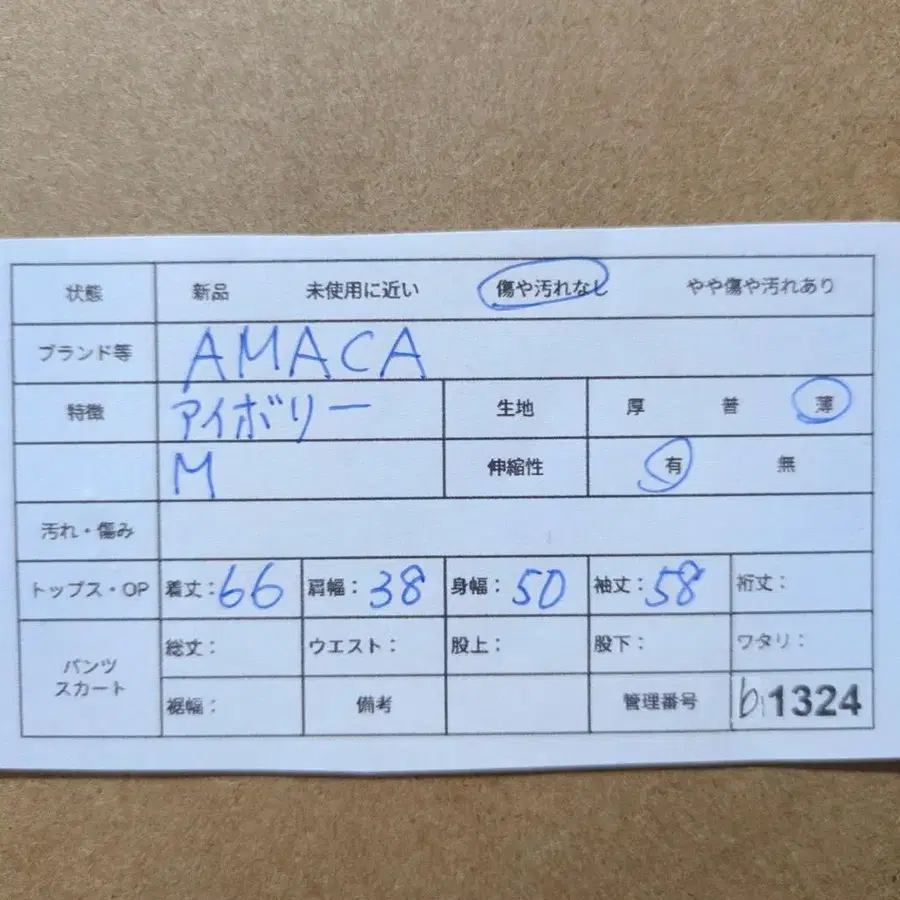 状態 新品 未使用に近い 傷や汚れなし やや傷や汚れあり
ブランド等 AMACA
特徴 アイボリー 生地 厚 普 薄
M 伸縮性 有 無
汚れ・傷み
トップス・OP 着丈:66 肩幅:38 身幅:50 袖丈:58 裄丈:
パンツ
スカート
総丈: ウエスト: 股上: 股下: ワタリ:
裾幅: 備考 管理番号 b1324